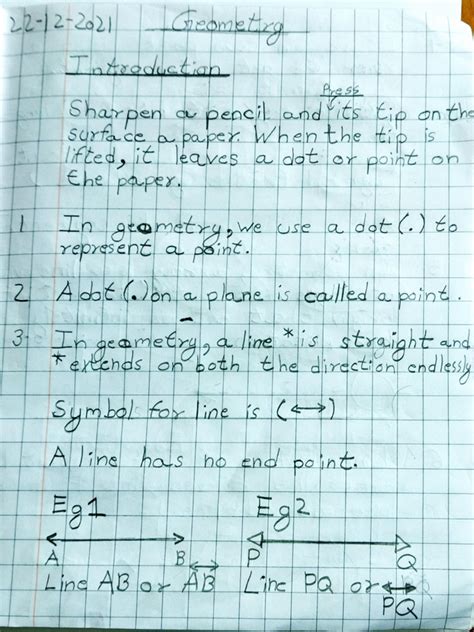 22-12-2021 Geometry
Introduction
Press
Sharpen a pencil and its tip on the
surface a paper. When the tip is
lifted, it leaves a dot or point on
the paper.
1 In geometry, we use a dot (.) to
represent a point.
2 A dot (.) on a plane is called a point.
3. In geometry, a line * is straight and
* extends on both the direction endlessly
Symbol for line is (↔)
A line has no end point.
Eg1 Eg2
A B P Q
Line AB or AB Line PQ or
PQ